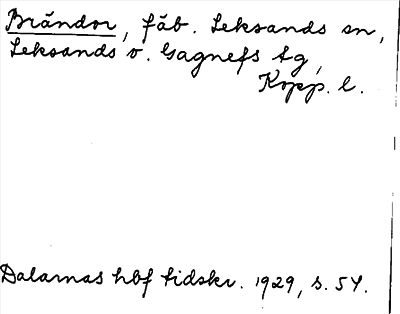 Brändor, fäb. Leksands sn,
Leksands o. Gagnefs tg,
Kopp. l.
Dalarnas hbf tidskr. 1929, s. 54.